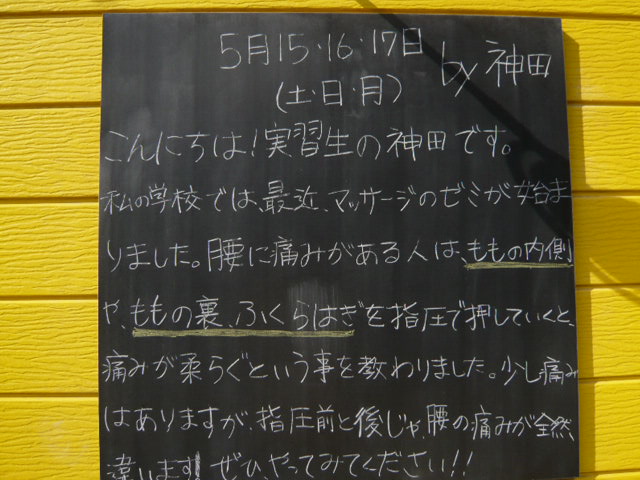 5月15・16・17日
(土・日・月)
by 神田
こんにちは!実習生の神田です。
私の学校では、最近、マッサージのゼミが始ま
りました。腰に痛みがある人は、ももの内側
や、ももの裏、ふくらはぎを指圧で押していくと、
痛みが柔らぐという事を教わりました。少し痛み
はありますが、指圧前と後じゃ、腰の痛みが全然
違います!ぜひ、やってみてください!!